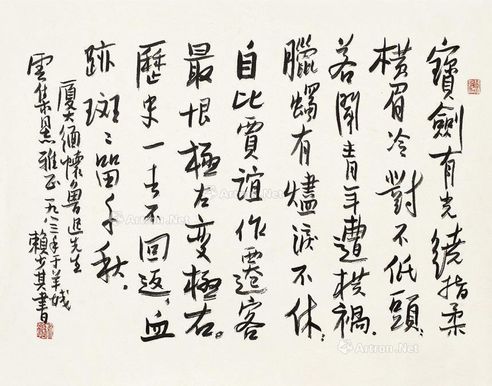 寶劍有光繞指柔
橫眉冷對不低頭。
若閗青年遭橫禍，
臘燭有燼淚不休；
自比賈誼作遷客
最恨極左變極右。
歷史一去不回返，血
跡斑々留千秋。
厦大緬懷魯迅先生
雲集
雅正 一九八三年于羊城
賴少其書
Artron.Net
Artron.Net